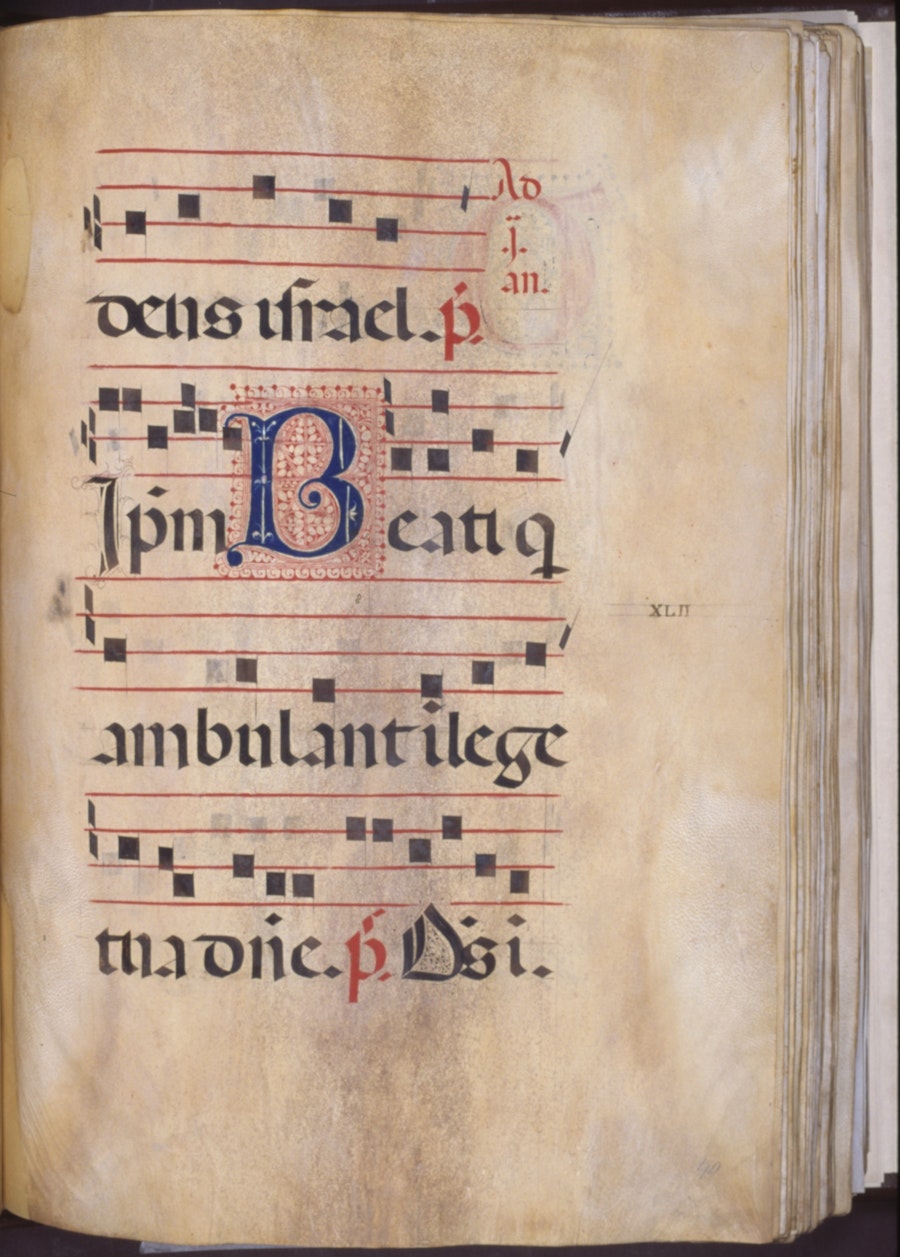 Ad
.j.
an.
deus israel. p̃.
Jpm̃ Beati q
XLII
ambulant i lege
tua dñe. p̃. Ds̃ i.